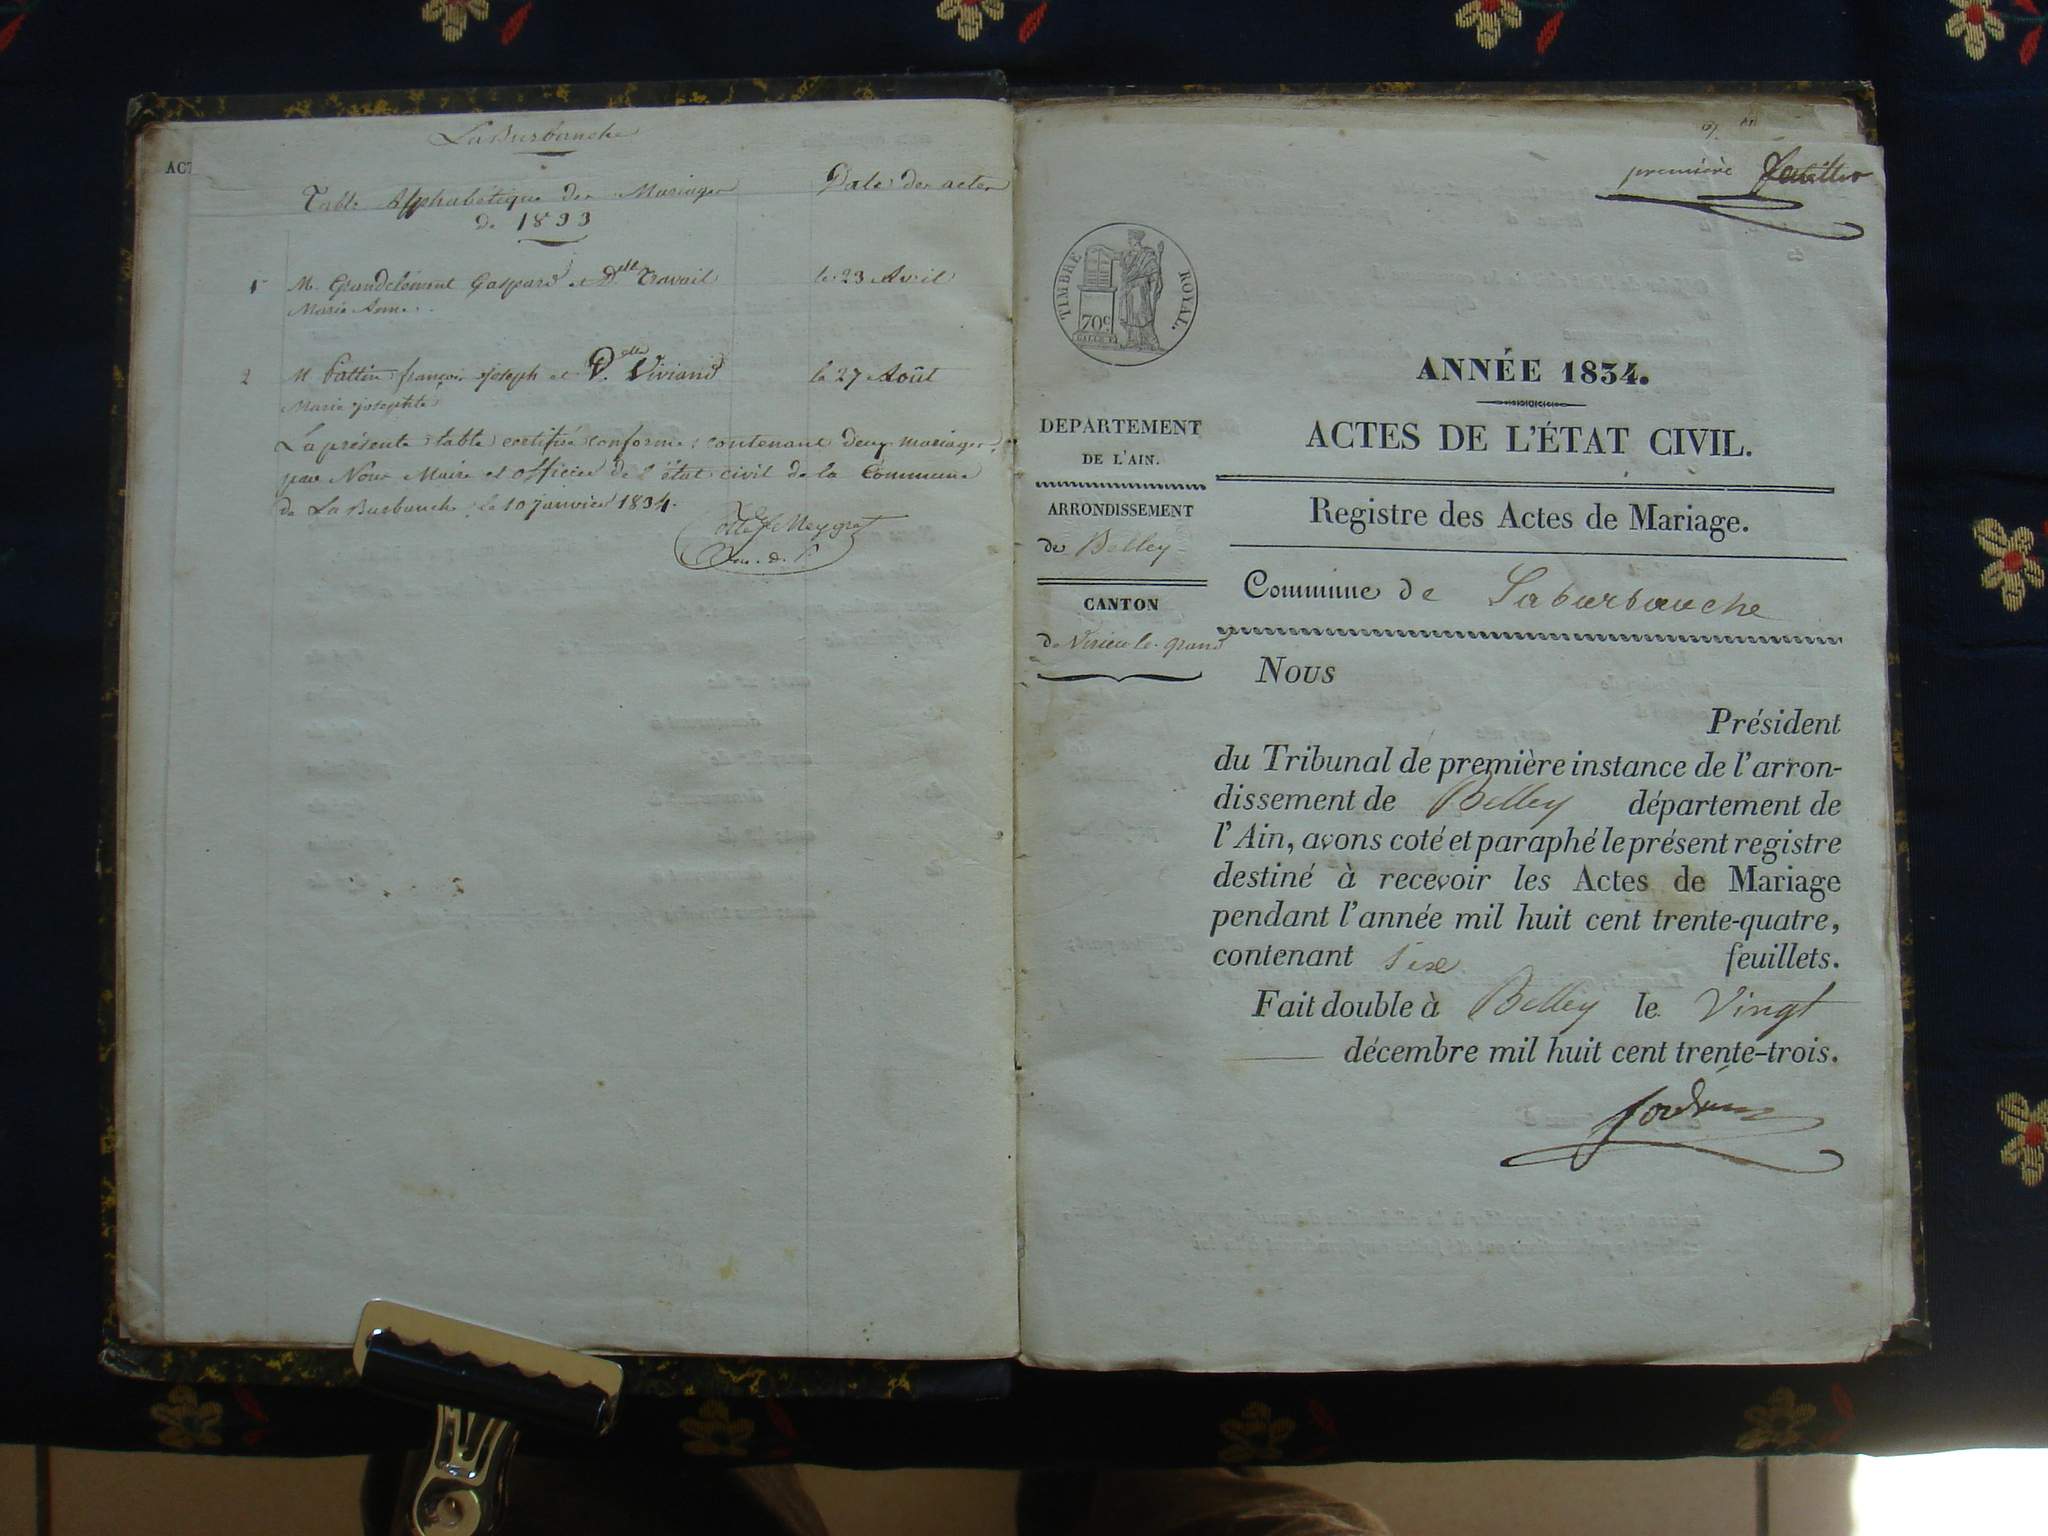 La Burbanche
ACT
Table Alphabétique des Mariages
de 1833
Date des actes
1 M. Grandclément Gaspard et Dlle Travail
Marie Anne.
le 23 Avril
2 M. Pattin françois joseph et Dlle Viviand
Marie josephte
le 27 Août
La présente table certifiée conforme contenant deux mariages,
par Nous Maire et officier de l'état civil de la Commune
de La Burbanche le 10 janvier 1834.
première feuillet
TIMBRE ROYAL.
70c
ANNÉE 1834.
ACTES DE L'ÉTAT CIVIL.
Registre des Actes de Mariage.
DEPARTEMENT
DE L'AIN.
ARRONDISSEMENT
de Belley
CANTON
de Virieu le grand
Commune de Laburbanche
Nous
Président
du Tribunal de première instance de l'arron-
dissement de Belley département de
l'Ain, avons coté et paraphé le présent registre
destiné à recevoir les Actes de Mariage
pendant l'année mil huit cent trente-quatre,
contenant six feuillets.
Fait double à Belley le Vingt
décembre mil huit cent trente-trois.